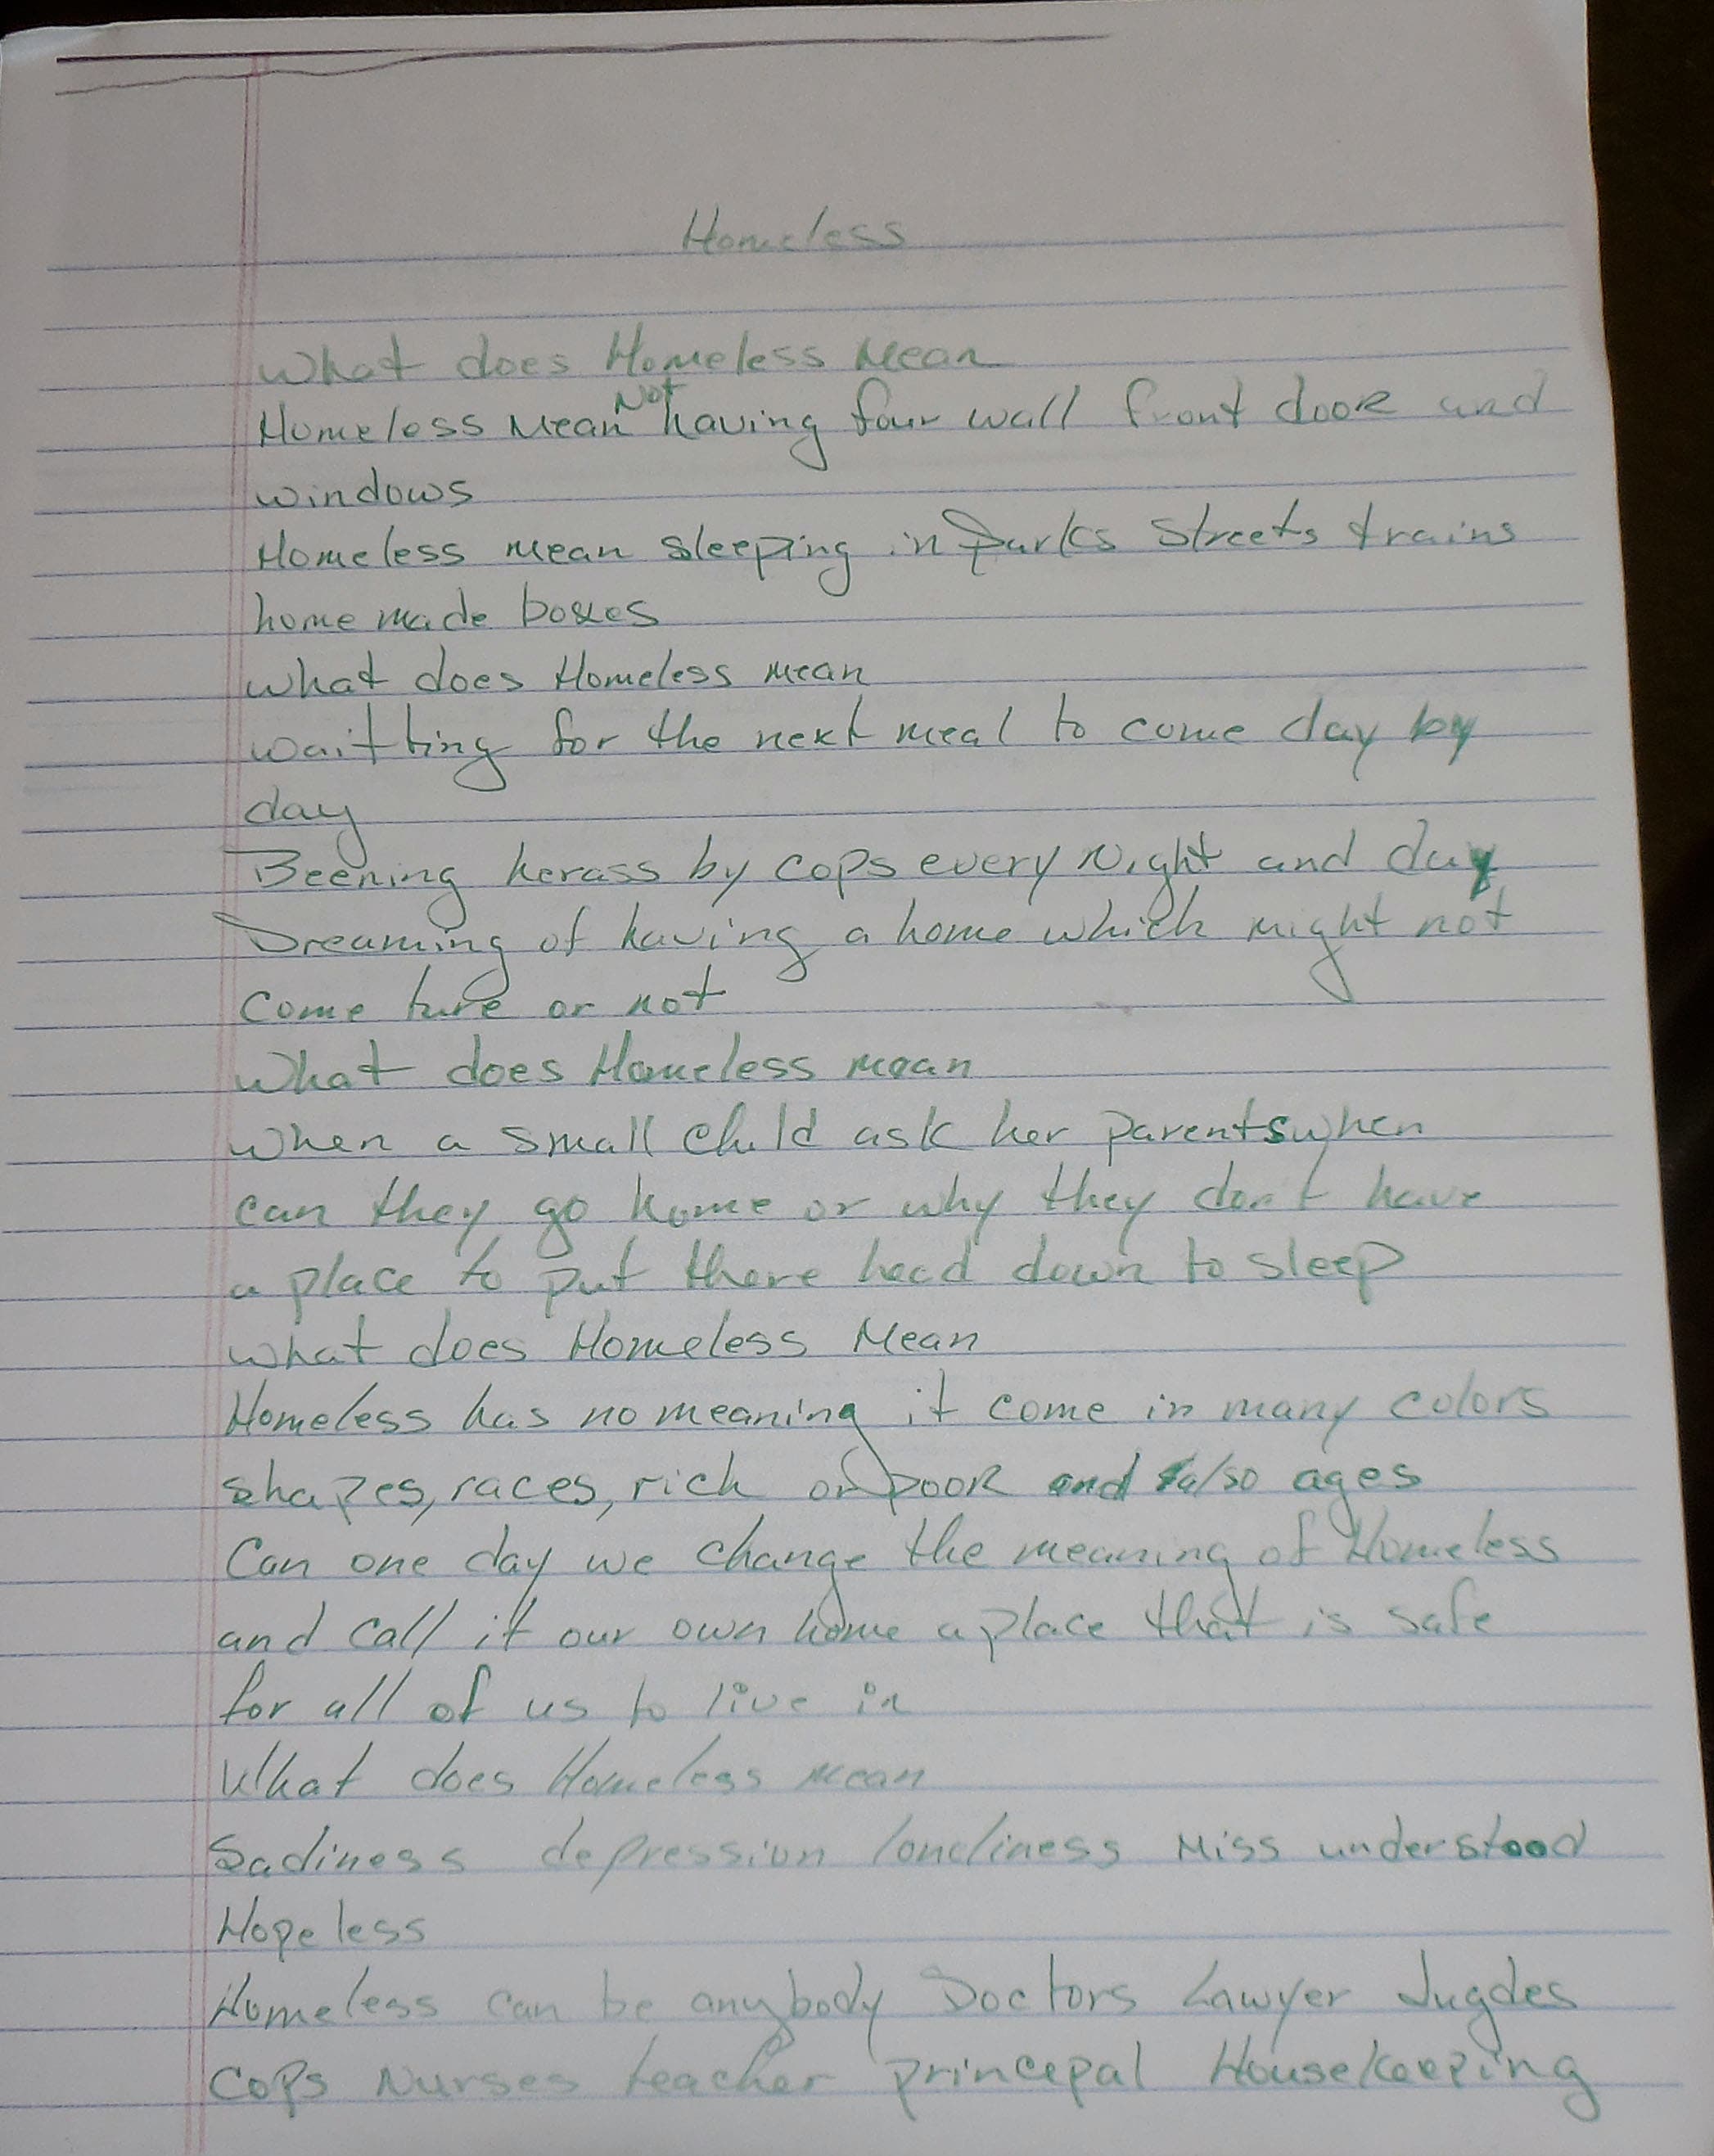 Homeless
What does Homeless Mean
Homeless Mean Not having four wall front door and
windows
Homeless mean sleeping in Parks Streets trains
home made boxes
what does Homeless mean
waitting for the next meal to come day by
day
Beening herass by cops every Night and day
Dreaming of having a home which might not
come ture or not
What does Homeless mean
when a small child ask her parents when
can they go home or why they don't have
a place to put there head down to sleep
what does Homeless Mean
Homeless has no meaning it come in many colors
shapes, races, rich or pooR and also ages
Can one day we change the meaning of Homeless
and call it our own home a place that is safe
for all of us to live in
What does Homeless mean
Sadiness depression loneliness Miss understood
Hopeless
Homeless can be anybody Doctors Lawyer Jugdes
Cops Nurses teacher princepal Housekeeping